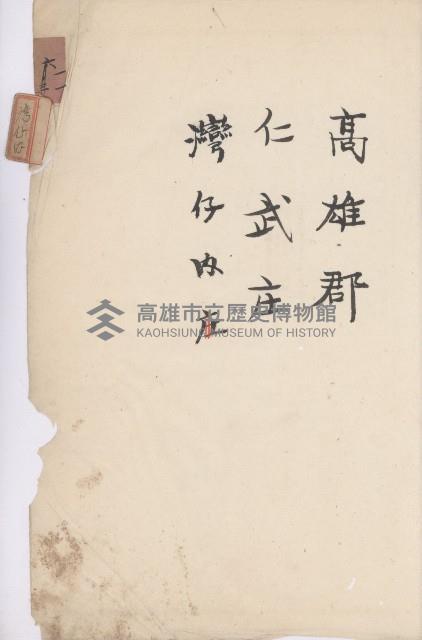 高雄郡
仁武庄
灣仔内庄
高雄市立歷史博物館
KAOHSIUNG MUSEUM OF HISTORY
灣仔内